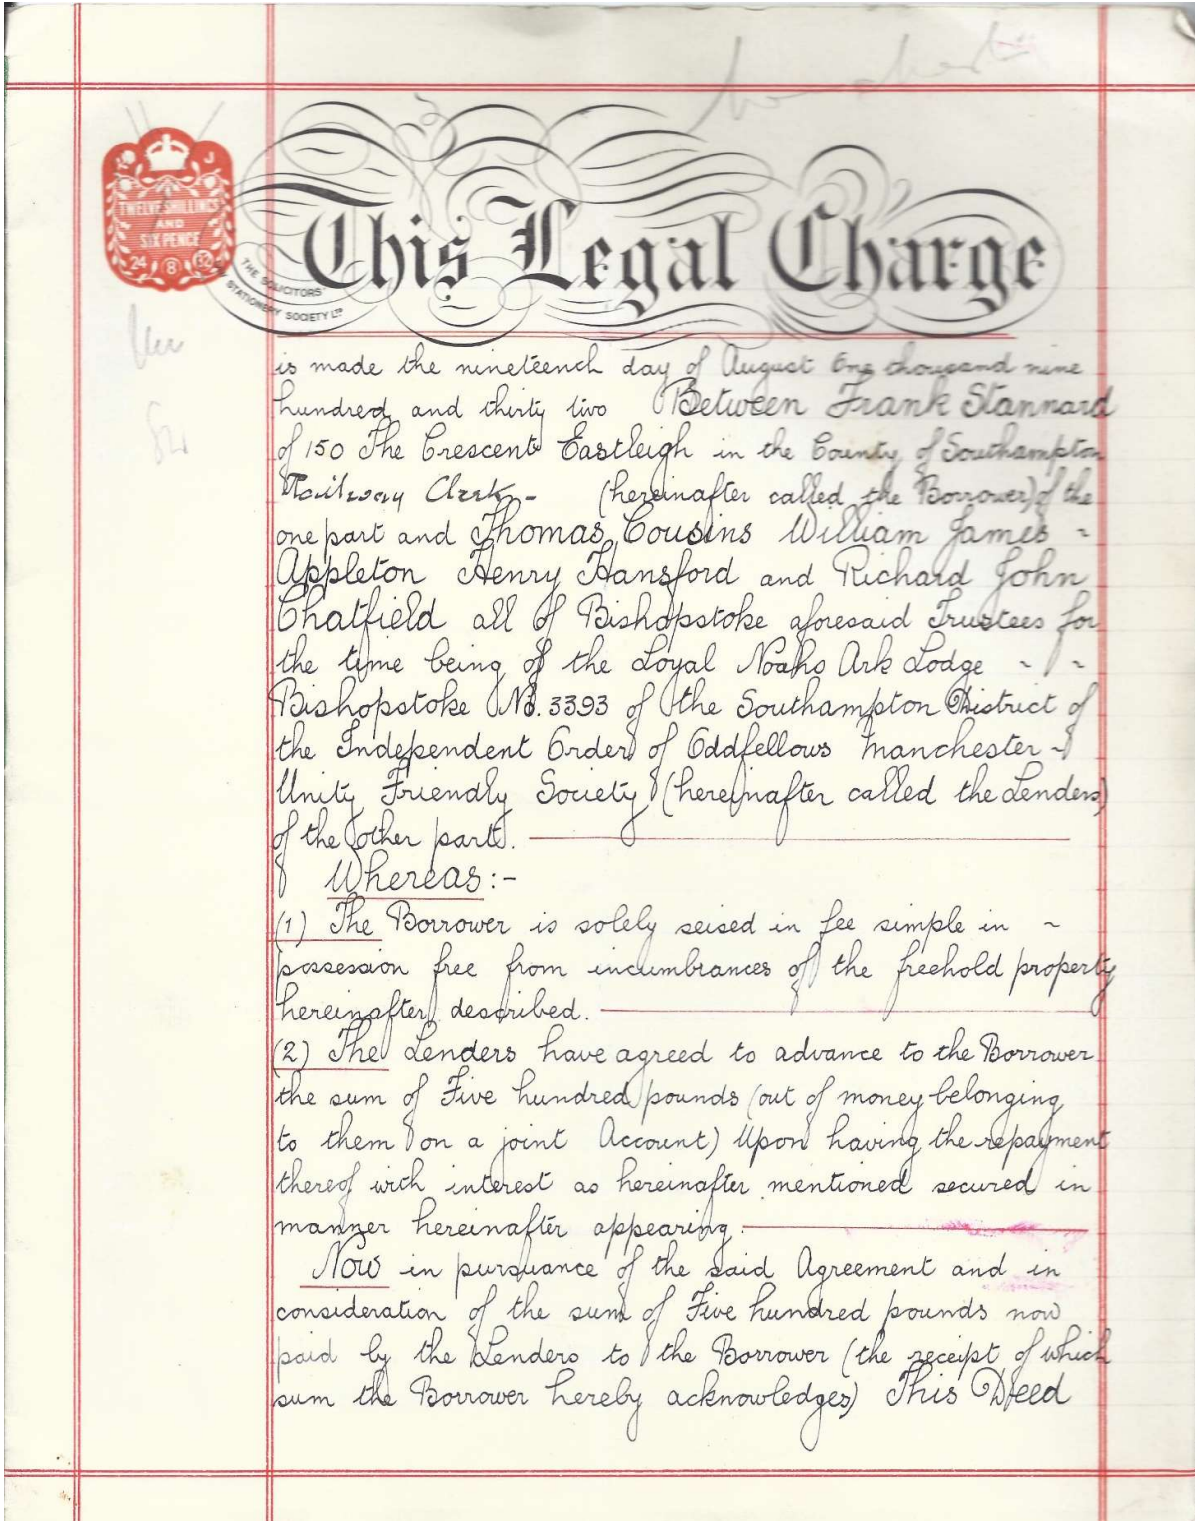 TWELVE SHILLINGS
AND
SIX PENCE
24 8 32
THE SOLICITORS'
STATIONERY SOCIETY LTD
This Legal Charge
is made the nineteenth day of August One thousand nine
hundred and thirty two Between Frank Stannard
of 150 The Crescent Eastleigh in the County of Southampton
Railway Clerk - (hereinafter called the Borrower) of the
one part and Thomas Cousins William James -
Appleton Henry Hansford and Richard John
Chatfield all of Bishopstoke aforesaid Trustees for
the time being of the Loyal Noahs Ark Lodge - -
Bishopstoke No. 3393 of the Southampton District of
the Independent Order of Oddfellows Manchester -
Unity Friendly Society (hereinafter called the Lenders)
of the other part.
Whereas:-
(1) The Borrower is solely seised in fee simple in ~
possession free from incumbrances of the freehold property
hereinafter described.
(2) The Lenders have agreed to advance to the Borrower
the sum of Five hundred pounds (out of money belonging
to them on a joint Account) Upon having the repayment
thereof with interest as hereinafter mentioned secured in
manner hereinafter appearing.
Now in pursuance of the said Agreement and in
consideration of the sum of Five hundred pounds now
paid by the Lenders to the Borrower (the receipt of which
sum the Borrower hereby acknowledges) This Deed